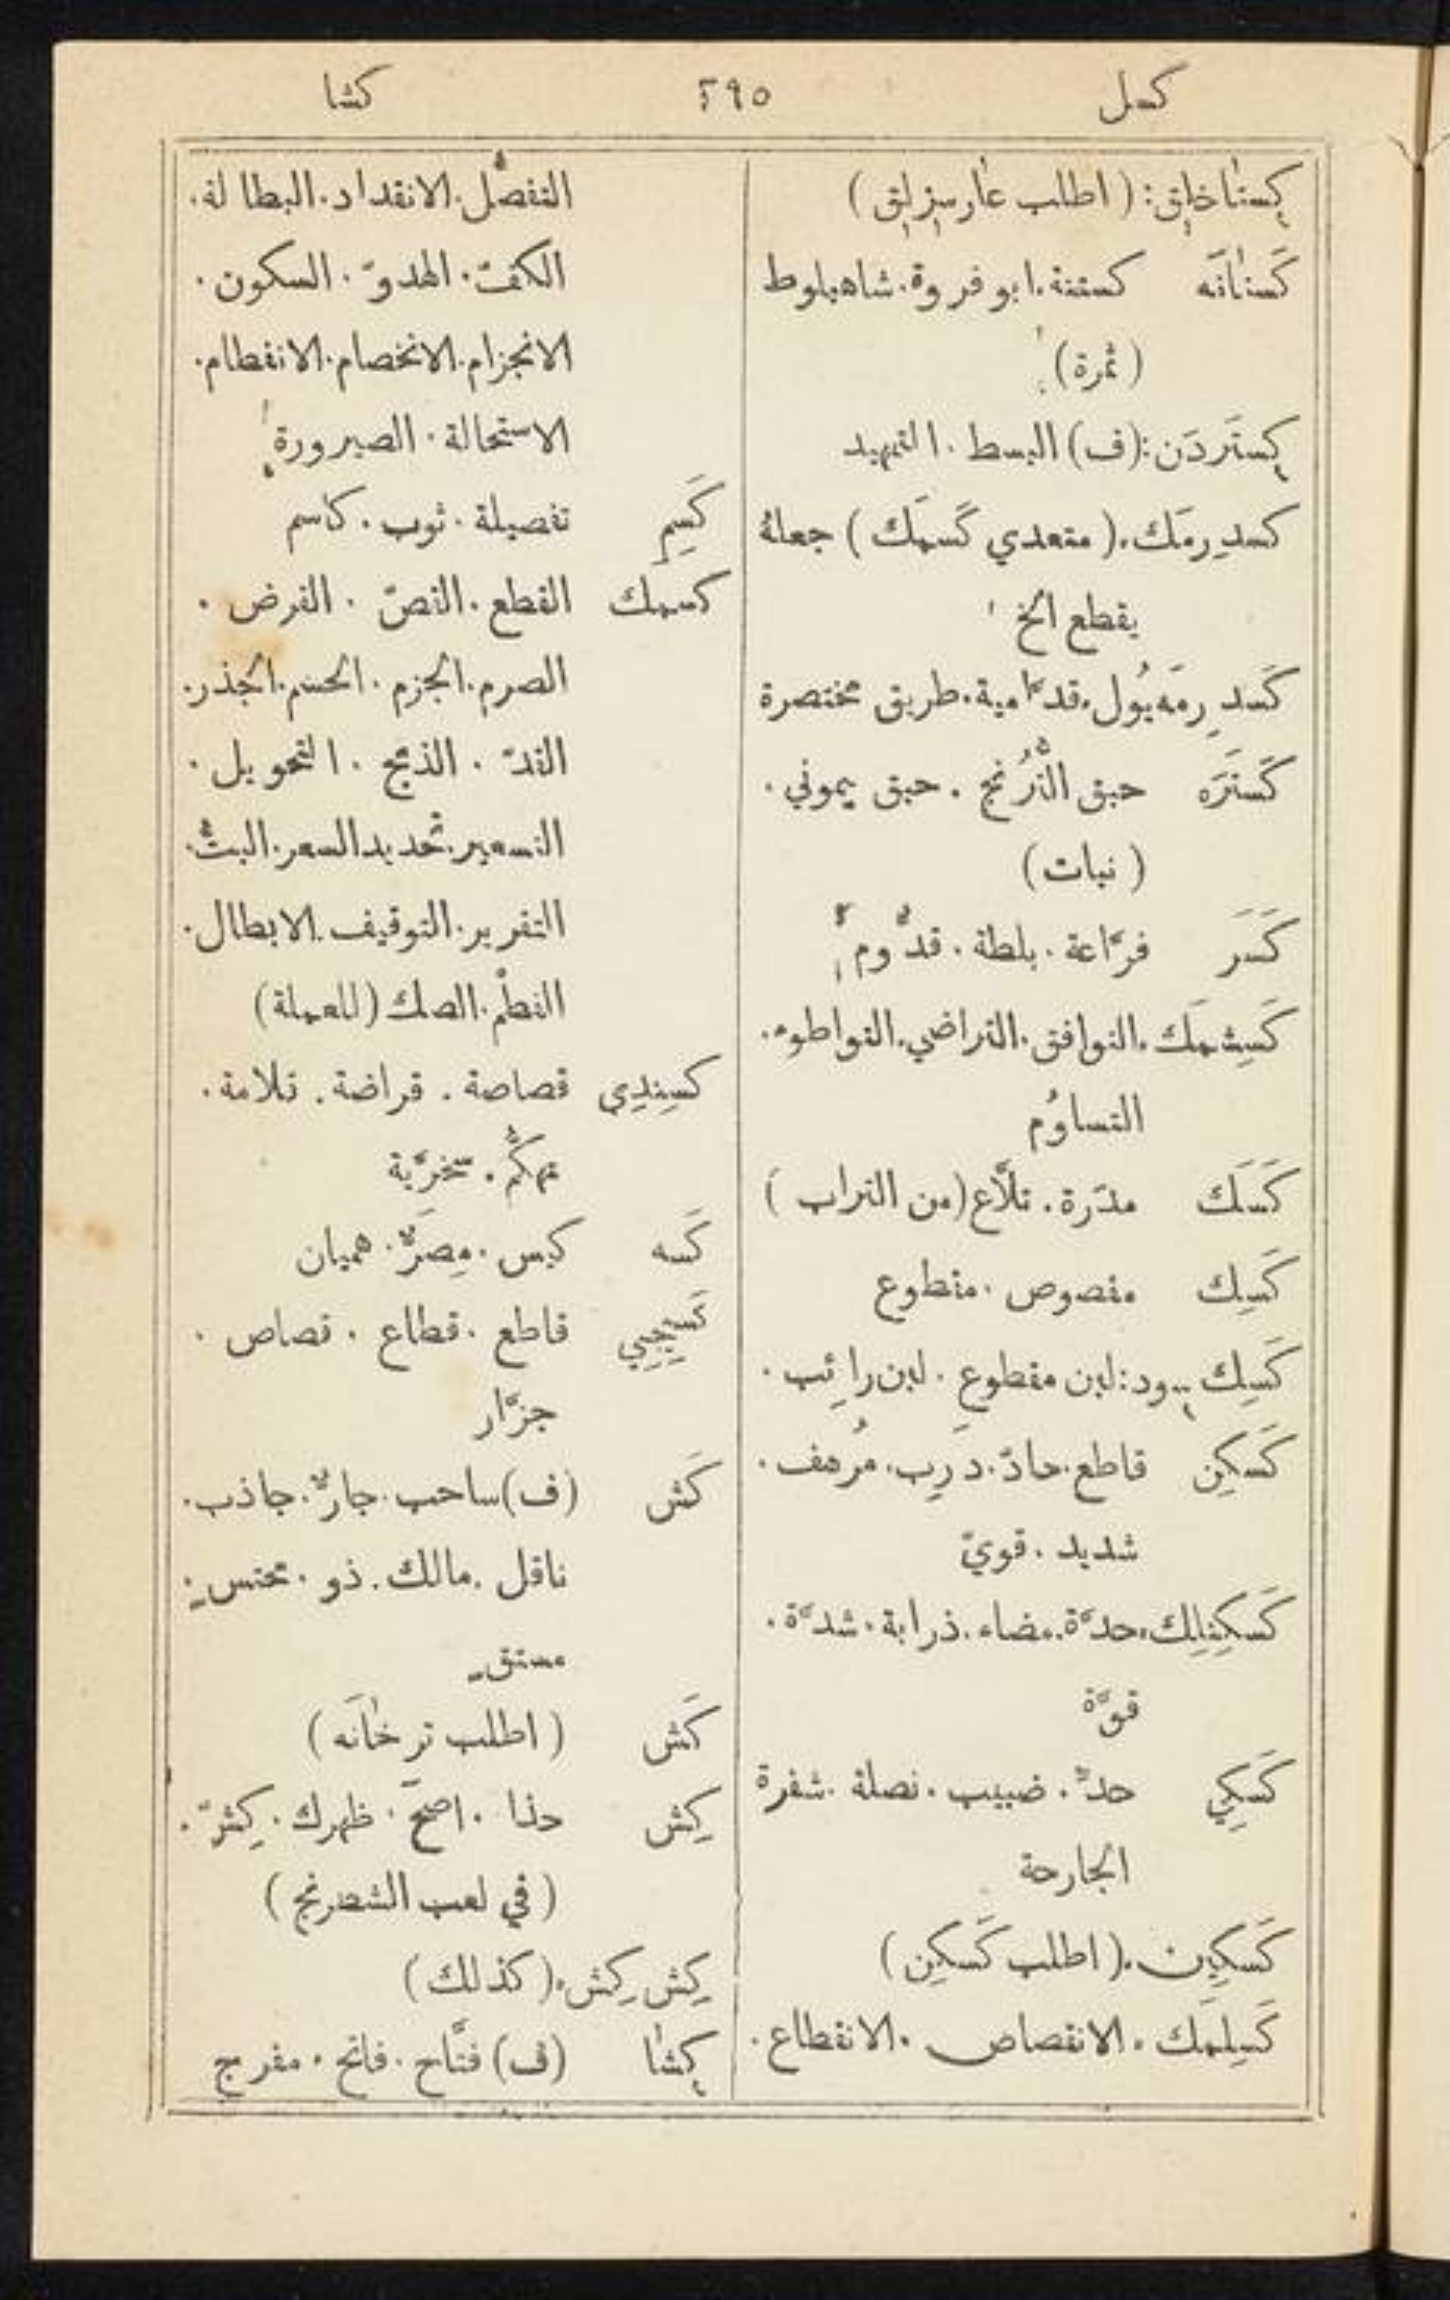 كسل ٢٩٥ كشا
كِستاخلِق: (اطلب عارسِزلِق)
كَستانَه كستنة. ابو فروة. شاه بلوط
(ثمرة)
كِستَردَن: (ف) البسط. التمهيد
كسدِرمَك. (متعدي كَسمَك) جعلهُ
يقطع الخ
كَسدِرمَه يُول. قدّامية. طريق مختصرة
كَستَرَه حبق التُّرُنج. حبق يموني.
(نبات)
كَسَر فرّاعة. بلطة. قدُّوم
كَسِشمَك. التوافق. التراضي. التواطوء.
التساوُم
كَسَك مدَرة. تلَّاع (من التراب)
كَسِك مقصوص. مقطوع
كَسِك سود: لبن مقطوع. لبن رائب.
كَسكِن قاطع. حادّ. دَرِب. مُرهف.
شديد. قويّ
كَسكِنلِك. حدّة. مضاء. ذرابة. شدّة.
قوّة
كَسكِي حدّ. ضبيب. نصلة. شفرة
الجارحة
كَسكِين. (اطلب كَسكِن)
كَسِلمَك. الانقصاص. الانقطاع.
التفصُّل. الانقداد. البطالة.
الكفّ. الهدوّ. السكون.
الانجزام. الانخصام. الانفطام.
الاستحالة. الصيرورة
كَسِم تفصيلة. ثوب. كاسم
كسمك القطع. القصّ. القرض.
الصرم. الجزم. الحسم. الجذر.
القدّ. الذبح. التحويل.
التسعير. تحديد السعر. البتُّ.
التقرير. التوقيف. الابطال.
القطْم. الصك (للعملة)
كسِندِي قصاصة. قراضة. تلامة.
تهكُّم. سخرّية
كَسه كيس. مِصَرٌّ. هميان
كَسِيجِي قاطع. قطاع. قصاص.
جزَّار
كَش (ف) ساحب. جارٌّ. جاذب.
ناقل. مالك. ذو. محتس.
مستق
كَش (اطلب ترخانَه)
كِش حذا. اصحَ. ظهرك. كِشّ.
(في لعب الشطرنج)
كِش كِش. (كذلك)
كِشا (ف) فتَّاح. فاتح. مفرج